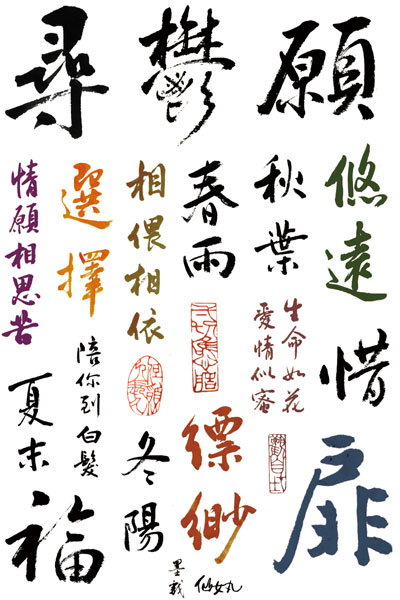 願
鬱
尋
悠遠
秋葉
春雨
相偎相依
選擇
情願相思苦
惜
生命如花
愛情似蜜
縹緲
陪你到白髮
夏末
扉
冬陽
福
仙女丸